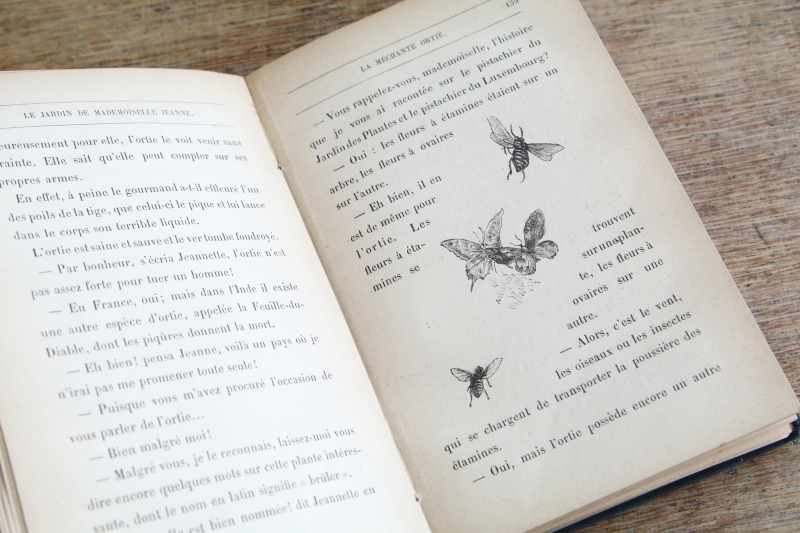 LE JARDIN DE MADEMOISELLE JEANNE.
eureusement pour elle, l'ortie le voit venir sans
rainte. Elle sait qu'elle peut compter sur ses
propres armes.
En effet, à peine le gourmand a-t-il effleuré l'un
des poils de la tige, que celui-ci le pique et lui lance
dans le corps son terrible liquide.
L'ortie est saine et sauve et le ver tombe foudroyé.
— Par bonheur, s'écria Jeannette, l'ortie n'est
pas assez forte pour tuer un homme!
— En France, oui; mais dans l'Inde il existe
une autre espèce d'ortie, appelée la Feuille-du-
Diable, dont les piqûres donnent la mort.
— Eh bien! pensa Jeanne, voilà un pays où je
n'irai pas me promener toute seule!
— Puisque vous m'avez procuré l'occasion de
vous parler de l'ortie...
— Bien malgré moi!
— Malgré vous, je le reconnais, laissez-moi vous
dire encore quelques mots sur cette plante intéres-
sante, dont le nom en latin signifie « brûler ».
elle est bien nommée! dit Jeannette en
LA MÉCHANTE ORTIE. 159
— Vous rappelez-vous, mademoiselle, l'histoire
que je vous ai racontée sur le pistachier du
Jardin des Plantes et le pistachier du Luxembourg?
— Oui : les fleurs à étamines étaient sur un
arbre, les fleurs à ovaires
sur l'autre.
— Eh bien, il en
est de même pour
l'ortie. Les
fleurs à éta-
mines se
trouvent
sur une plan-
te, les fleurs à
ovaires sur une
autre.
— Alors, c'est le vent,
les oiseaux ou les insectes
qui se chargent de transporter la poussière des
étamines.
— Oui, mais l'ortie possède encore un autre